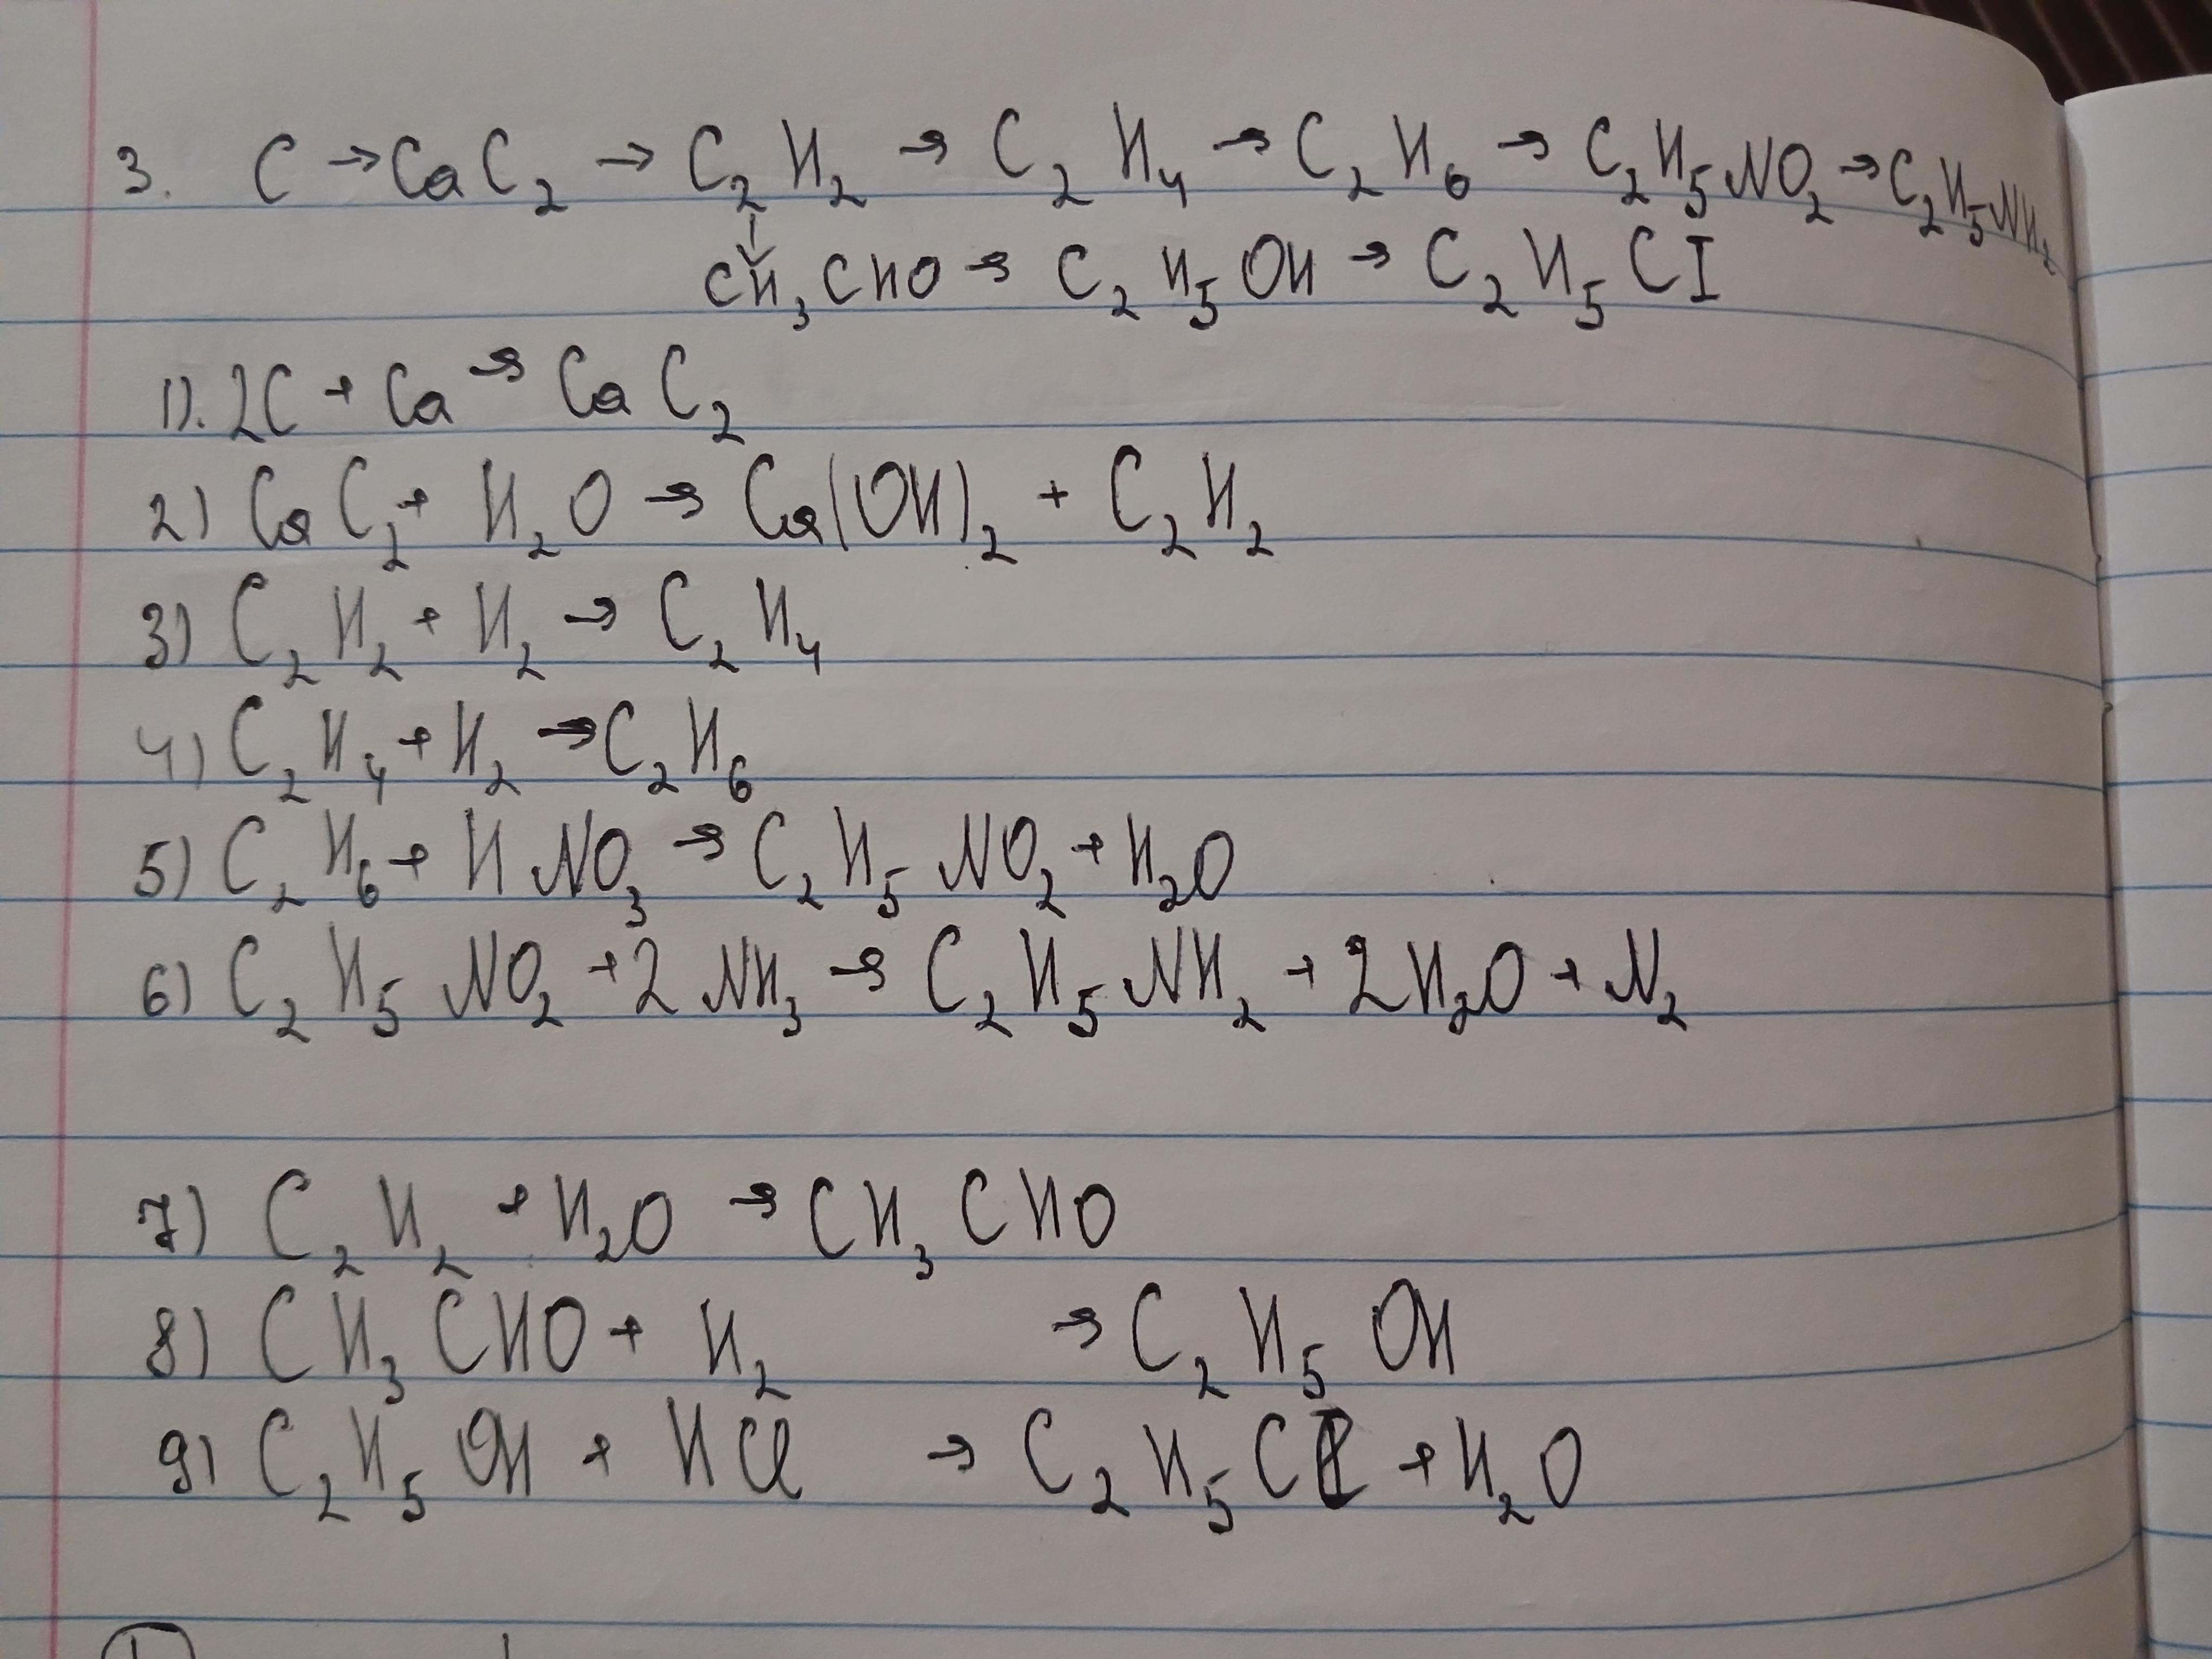 3. C → CaC₂ → C₂H₂ → C₂H₄ → C₂H₆ → C₂H₅NO₂ → C₂H₅NH₂
↓
CH₃CHO → C₂H₅OH → C₂H₅Cl
1). 2C + Ca → CaC₂
2) CaC₂ + H₂O → Ca(OH)₂ + C₂H₂
3) C₂H₂ + H₂ → C₂H₄
4) C₂H₄ + H₂ → C₂H₆
5) C₂H₆ + HNO₃ → C₂H₅NO₂ + H₂O
6) C₂H₅NO₂ + 2NH₃ → C₂H₅NH₂ + 2H₂O + N₂
7) C₂H₂ + H₂O → CH₃CHO
8) CH₃CHO + H₂ → C₂H₅OH
9) C₂H₅OH + HCl → C₂H₅Cl + H₂O